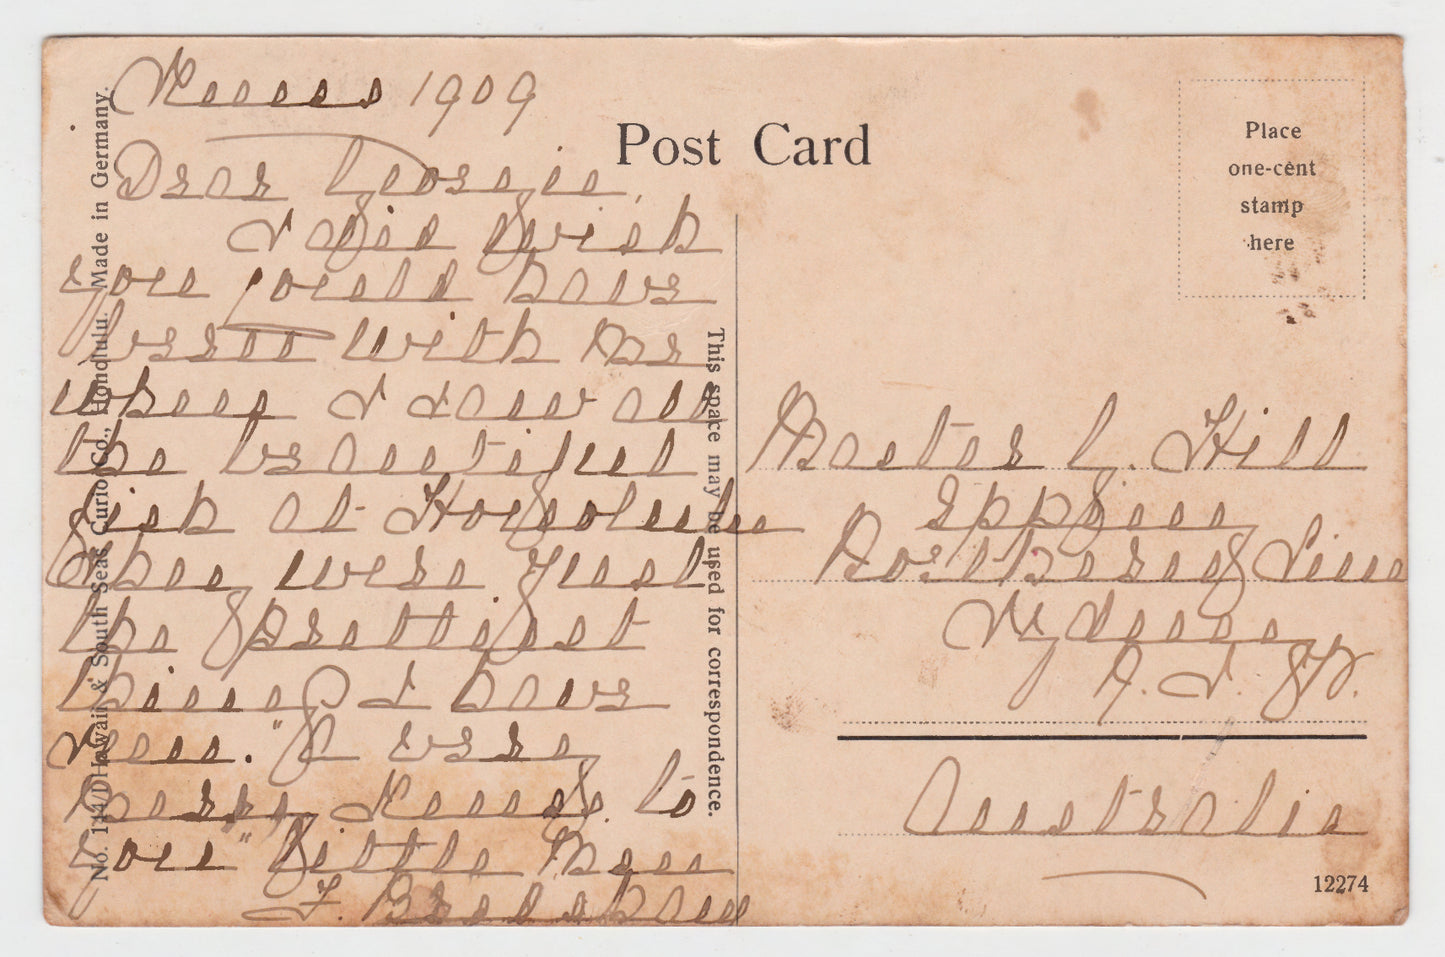 Xmas 1909
Dear Georgie,
I do wish
you could have
been with me
when I saw all
the beautiful
fish at Honolulu
They were just
the prettiest
things I have
seen. "A very
Merry Xmas to
you" Little Man
F.
Post Card
Place
one-cent
stamp
here
This space may be used for correspondence.
Master G. Hill
Epping
Northern Line
Sydney
N. S. W.
Australia
12274
No. 144 Hawaii & South Seas Curio Co., Honolulu. Made in Germany.